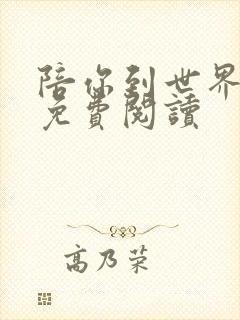 陪你到世界
免費閱讀
高乃荣